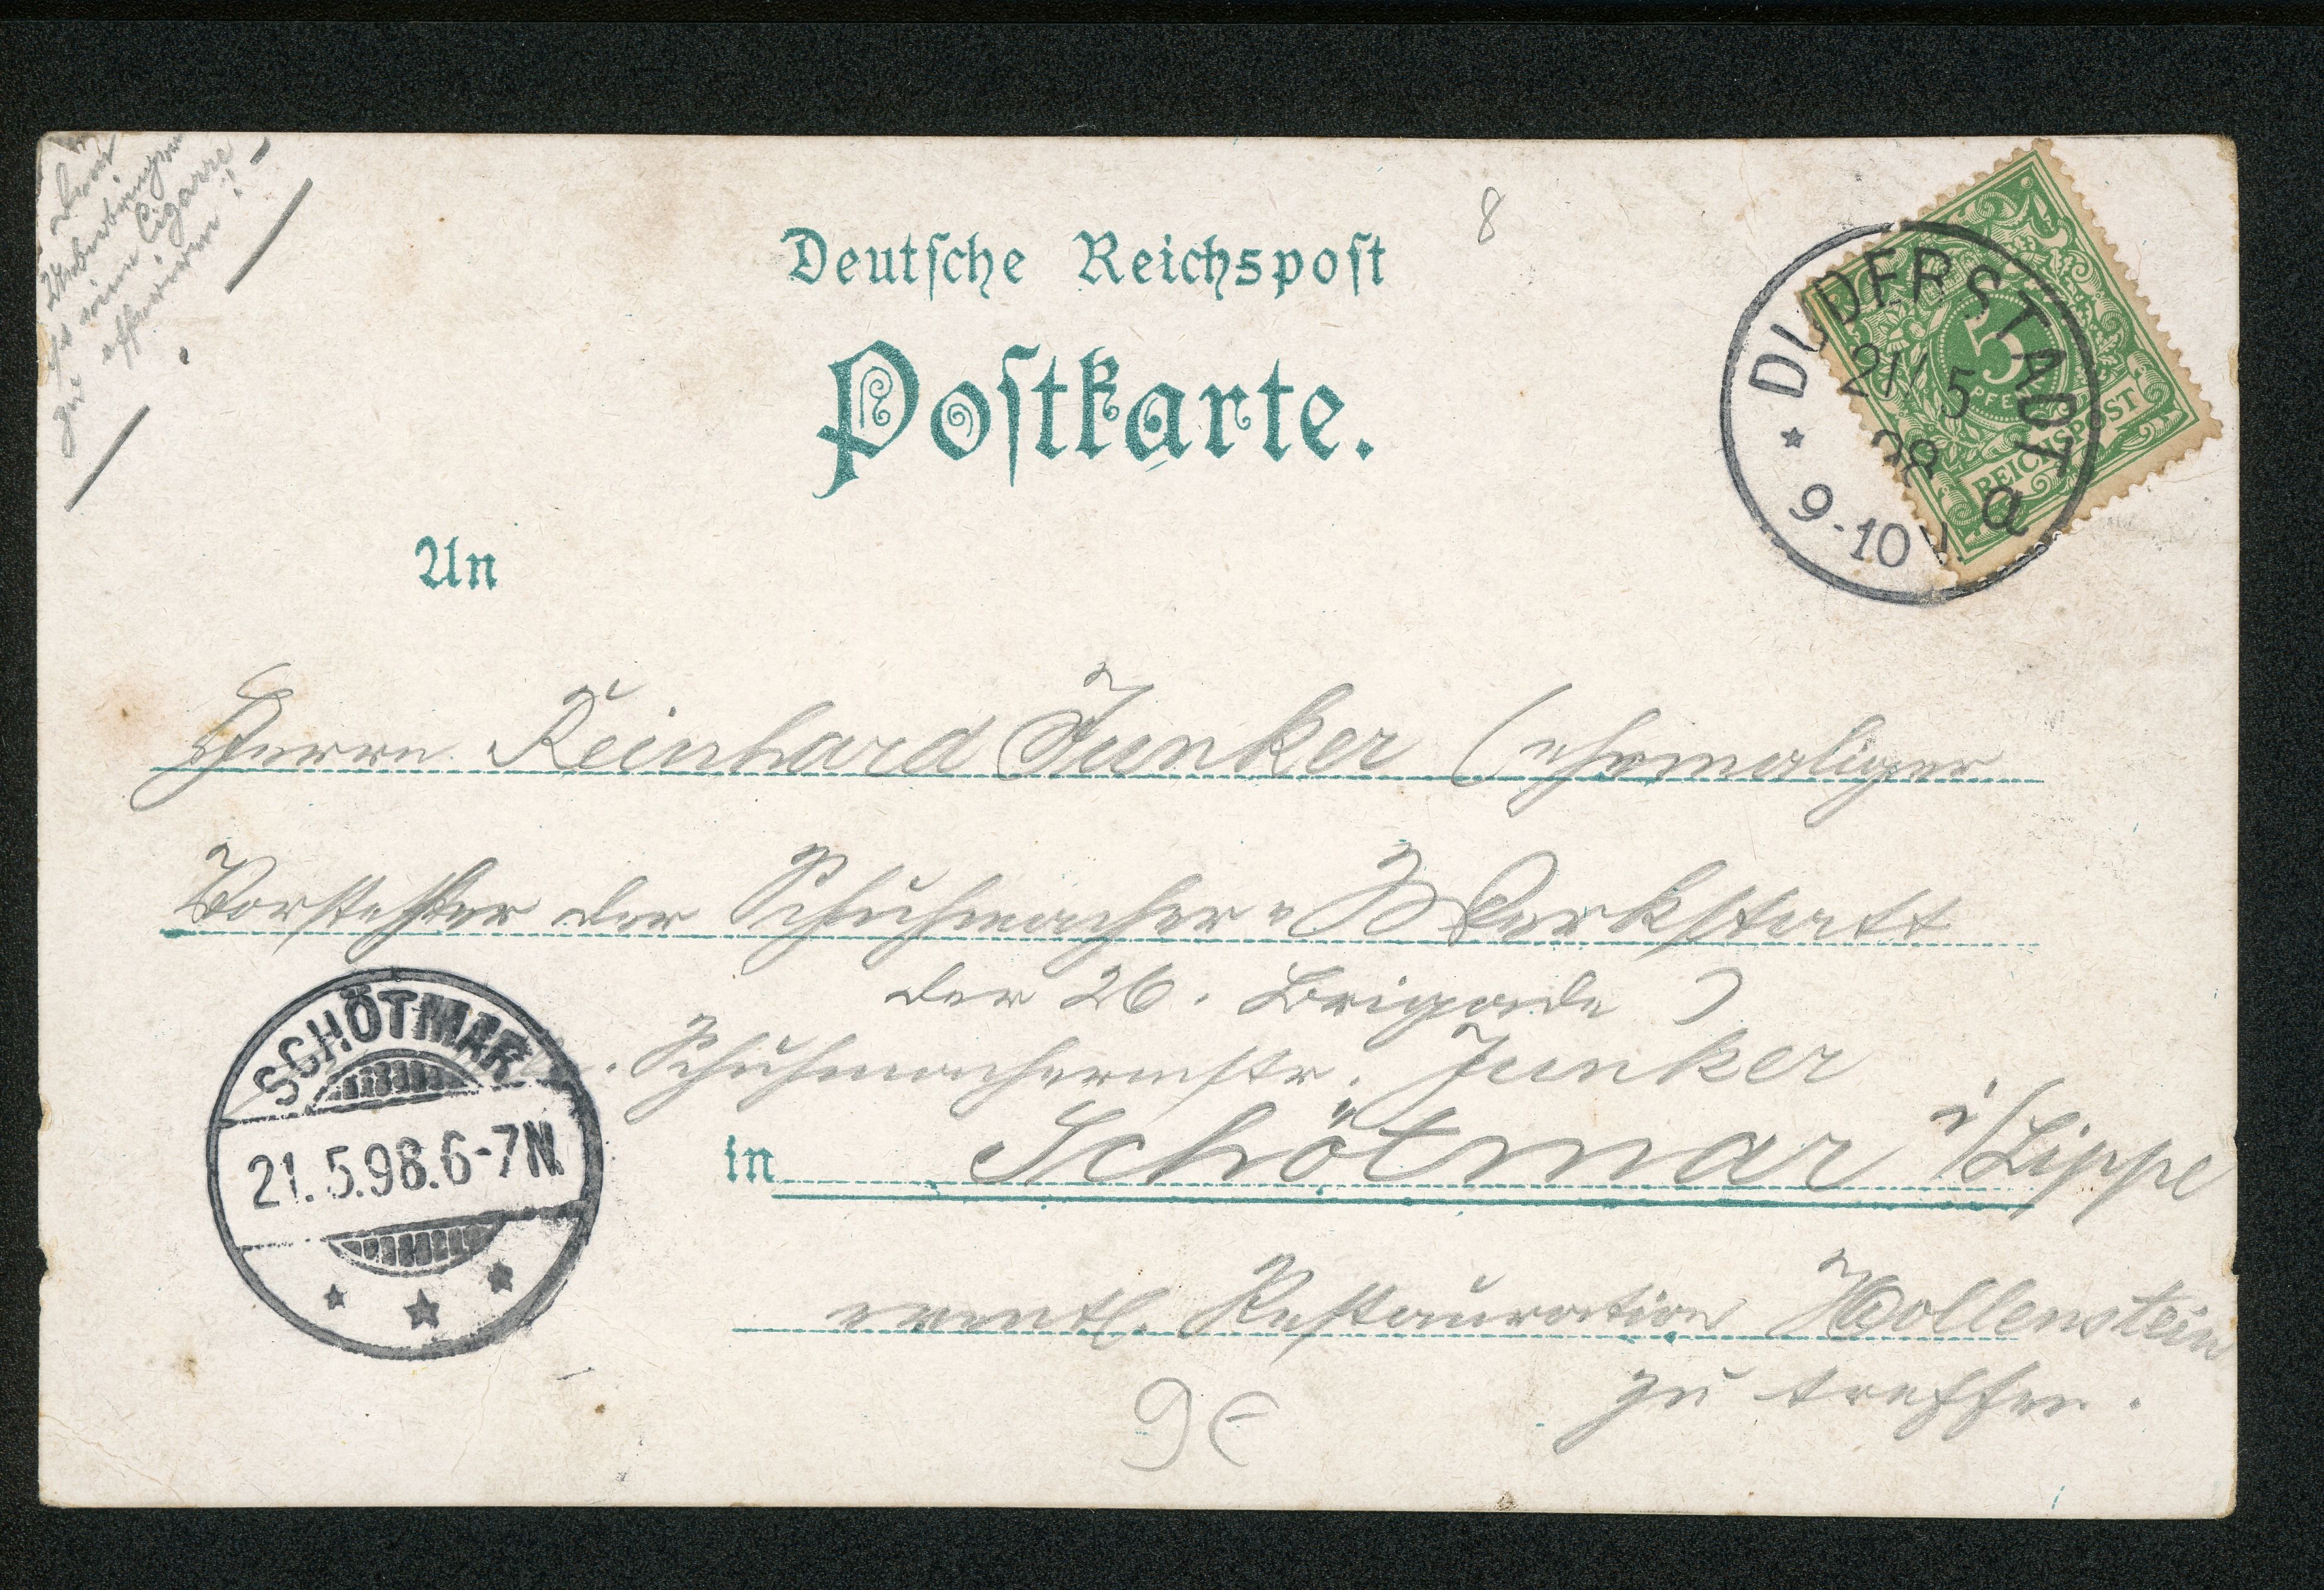 Dem
Ueberbringer
ist eine Cigarre
zu offeriren!
8
Deutsche Reichspost
Postkarte.
DUDERSTADT
21/5
98
9-10V.
a
5
PFENNIG
REICHSPOST
An
Herrn Reinhard Junker (ehemaliger
Vorsteher der Schuhmacher-Werkstatt
der 26. Brigade)
Schuhmachermstr. Junker
in Schötmar i/Lippe
eventl. Restauration Hollenstein
zu treffen.
SCHÖTMAR
21.5.98.6-7N.
9€